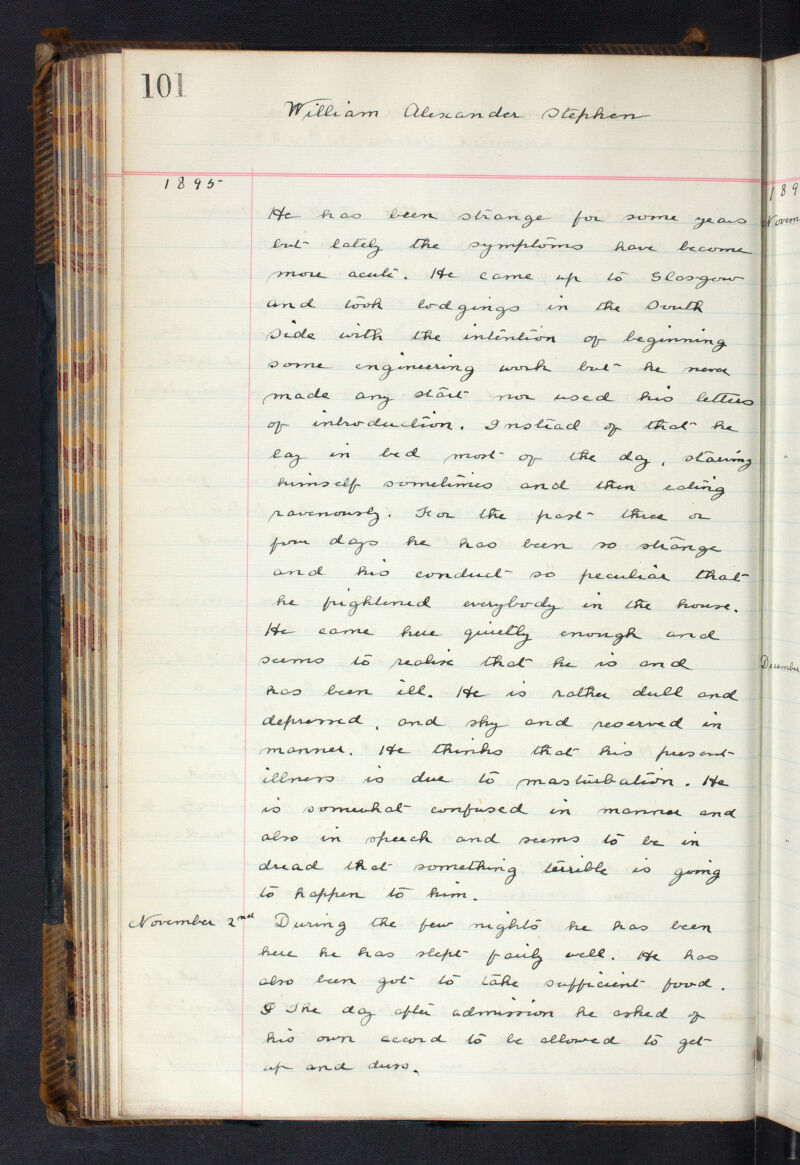 101
William Alexander Stephen
1895
He has been strange for some years
but lately the symptoms have become
more acute. He came up to Glasgow
and took lodgings in the South
Side with the intention of beginning
some engineering work but he never
made any start nor used his letters
of introduction. Instead of that he
lay in bed most of the day, starving
himself sometimes and then eating
ravenously. For the past three or
four days he has been so strange
and his conduct so peculiar that
he frightened everybody in the house.
He came here quietly enough and
seems to realise that he is and
has been ill. He is rather dull and
depressed, and shy and reserved in
manner. He thinks that his present
illness is due to masturbation. He
is somewhat confused in manner and
also in speech and seems to be in
dread that something terrible is going
to happen to him.
November 2nd During the few nights he has been
here he has slept fairly well. He has
also been got to take sufficient food.
The day after admission he asked of
his own accord to be allowed to get
up and dress.
189
Novem
December